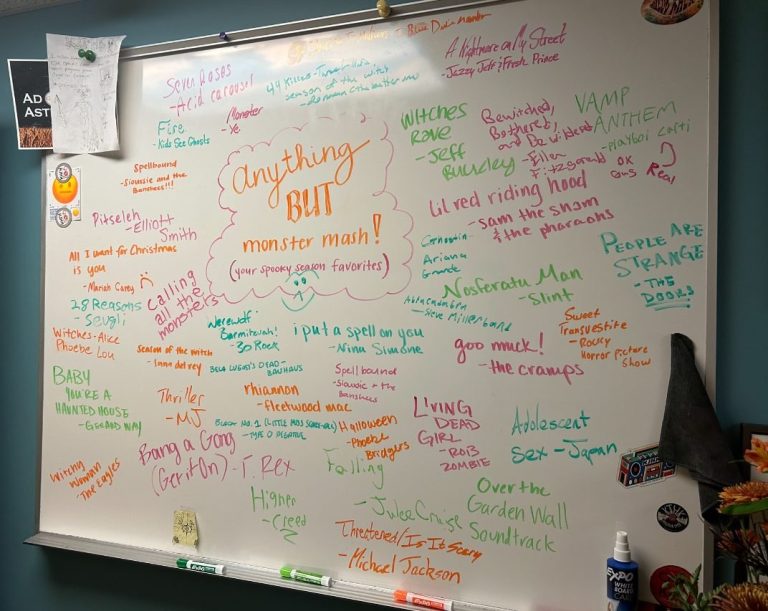 Seven Doses
- Acid carousel
Monster
- Ye
44 Killers -
season of the witch
A Nightmare on My Street
- Jazzy Jeff & Fresh Prince
AD
AST
Fire
- Kids See Ghosts
Spellbound
- Siouxsie and the
Banshees!!!
WITCHES
RAVE
- JEFF
BUCKLEY
Bewitched,
Bothered,
and Bewildered
- Ellen
Fitzgerald
VAMP
ANTHEM
- playboi carti
OK
Gus
Real
anything
BUT
monster mash!
(your spooky season favorites)
Pitseleh
- Elliott
Smith
All I want for Christmas
is you
- Mariah Carey
28 Reasons
- Seulgi
calling
all the
monsters
Lil red riding hood
- sam the sham
& the pharaohs
Ariana
Grande
PEOPLE ARE
STRANGE
- THE
DOORS
Nosferatu Man
- Slint
Abracadabra
- Steve Miller band
Witches - Alice
Phoebe Lou
Werewolf
Barmitzvah!
- 30 Rock
i put a spell on you
- Nina Simone
goo muck!
- the cramps
Sweet
Transvestite
- Rocky
Horror Picture
Show
Season of the witch
- lana del rey
BELA LUGOSI'S DEAD -
BAUHAUS
Spellbound
- Siouxsie + the
Banshees
BABY
YOU'RE A
HAUNTED HOUSE
- GERARD WAY
Thriller
- MJ
rhiannon
- fleetwood mac
BLACK NO. 1 (LITTLE MISS SCARE-ALL)
- TYPE O NEGATIVE
Halloween
- Phoebe
Bridgers
LIVING
DEAD
GIRL
- ROB
ZOMBIE
Adolescent
Sex - Japan
Witchy
Woman
- The Eagles
Bang a Gong
(Get it On) - T. Rex
Falling
- Julee Cruise
Higher
- Creed
Over the
Garden Wall
Soundtrack
Threatened/Is It Scary
- Michael Jackson
EXPO
WHITE
BOARD
CARE